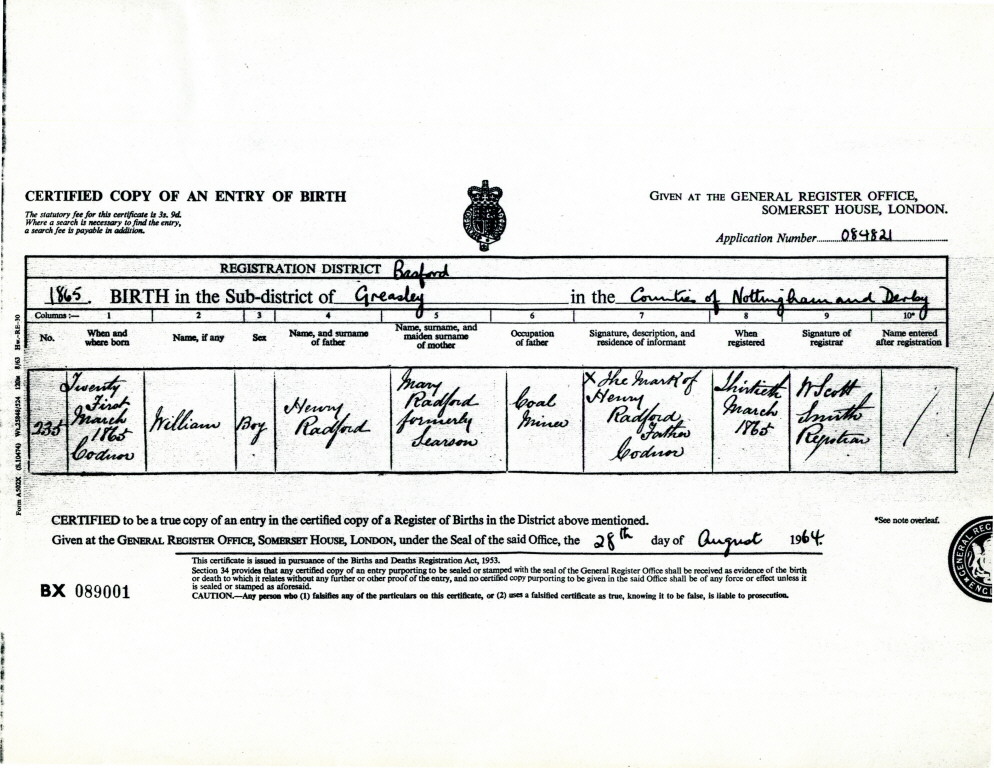 CERTIFIED COPY OF AN ENTRY OF BIRTH
The statutory fee for this certificate is 3s. 9d.
Where a search is necessary to find the entry,
a search fee is payable in addition.
GIVEN AT THE GENERAL REGISTER OFFICE,
SOMERSET HOUSE, LONDON.
Application Number 084821
REGISTRATION DISTRICT Basford
1865. BIRTH in the Sub-district of Greasley in the Counties of Nottingham and Derby
Columns:— 1 2 3 4 5 6 7 8 9 10*
No.
When and
where born
Name, if any
Sex
Name, and surname
of father
Name, surname, and
maiden surname
of mother
Occupation
of father
Signature, description, and
residence of informant
When
registered
Signature of
registrar
Name entered
after registration
235
Twenty
First
March
1865
Codnor
William
Boy
Henry
Radford
Mary
Radford
formerly
Searson
Coal
Miner
X The Mark of
Henry
Radford
Father
Codnor
Thirtieth
March
1865
W Scott
Smith
Registrar
CERTIFIED to be a true copy of an entry in the certified copy of a Register of Births in the District above mentioned.
*See note overleaf.
Given at the GENERAL REGISTER OFFICE, SOMERSET HOUSE, LONDON, under the Seal of the said Office, the 28th day of August 1964.
This certificate is issued in pursuance of the Births and Deaths Registration Act, 1953.
Section 34 provides that any certified copy of an entry purporting to be sealed or stamped with the seal of the General Register Office shall be received as evidence of the birth
or death to which it relates without any further or other proof of the entry, and no certified copy purporting to be given in the said Office shall be of any force or effect unless it
is sealed or stamped as aforesaid.
CAUTION.—Any person who (1) falsifies any of the particulars on this certificate, or (2) uses a falsified certificate as true, knowing it to be false, is liable to prosecution.
BX 089001
GENERAL REG
ENGL